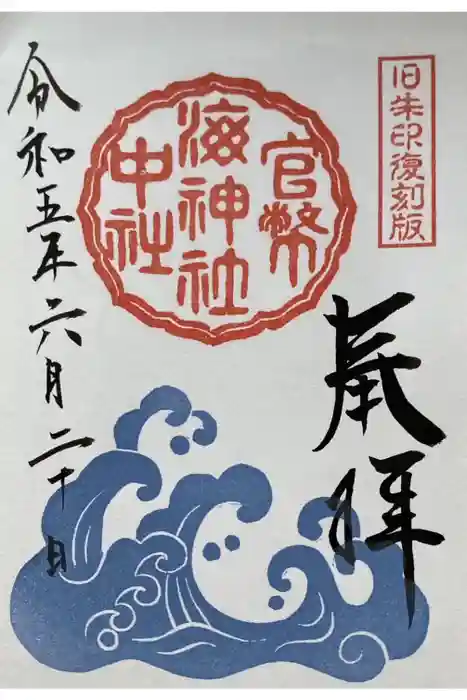 旧朱印復刻版
奉拝
官幣
海神社
中社
令和五年六月二十日